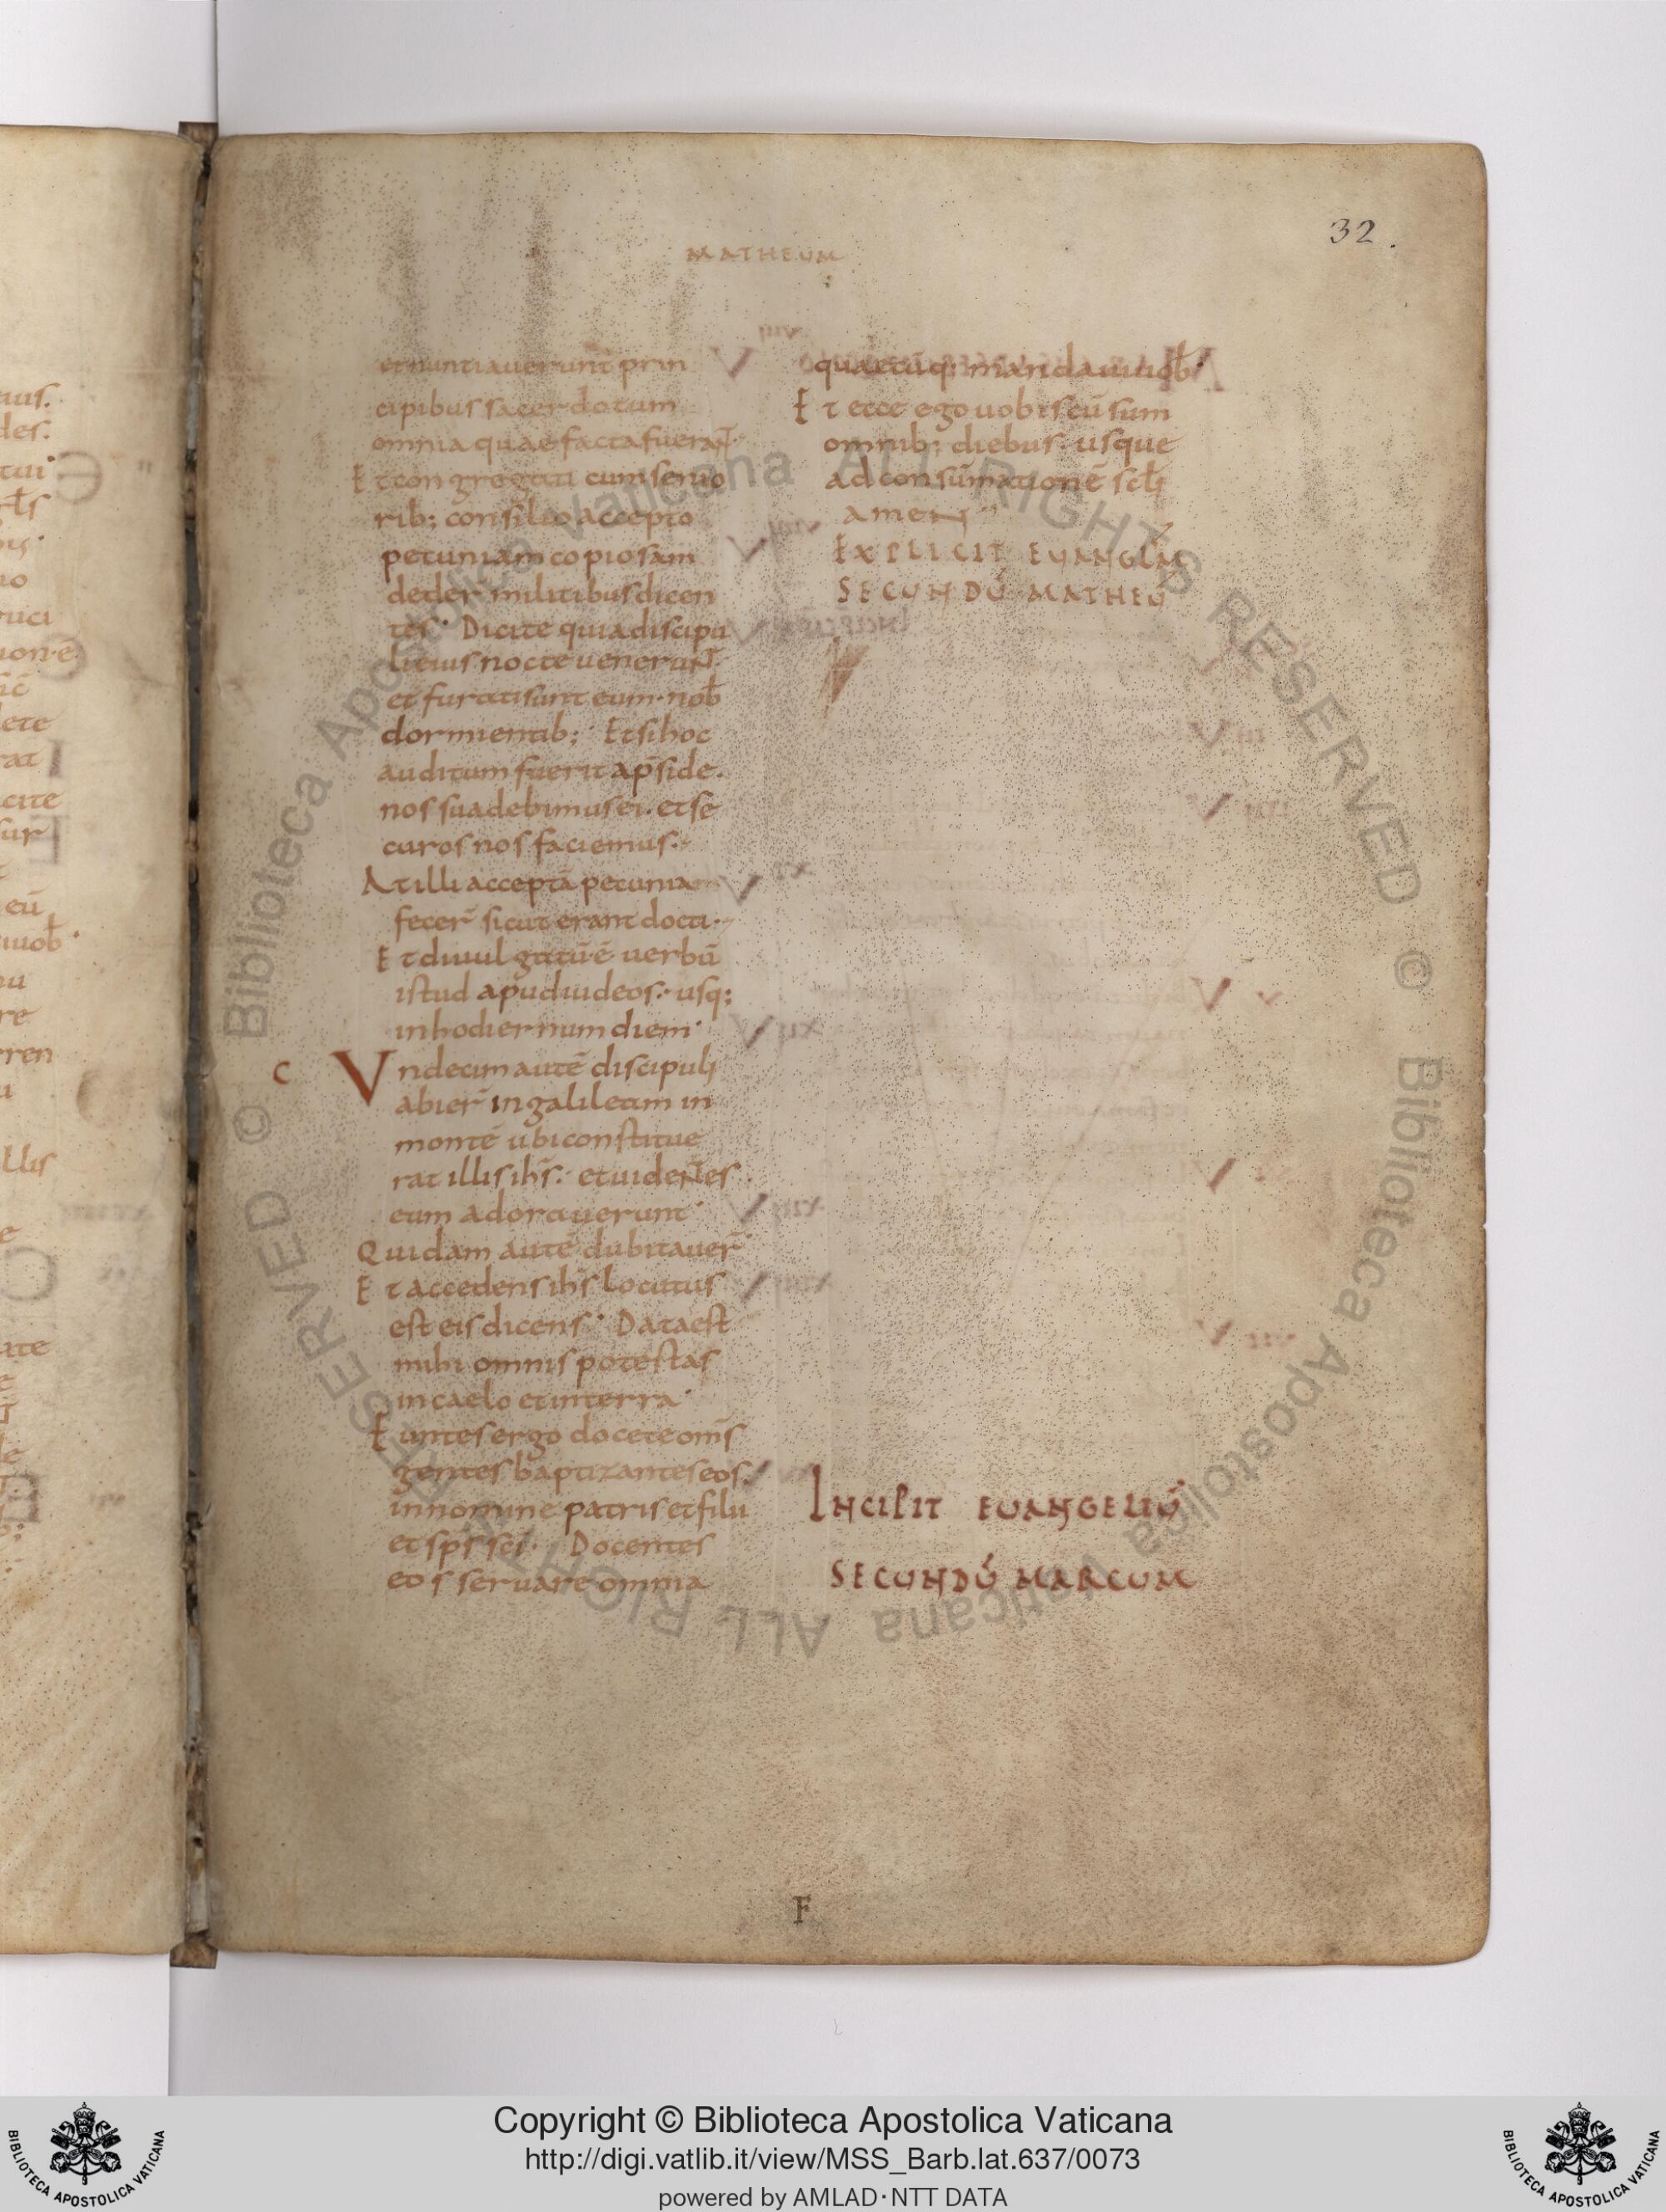 32.
MATHEUM
et nuntiauerunt prin
cipibus sacerdotum
omnia quae facta fuerant̄
Et congregati cum senio
rib; consilio accepto
pecuniam copiosam
deder̄ militibus dicen
tes· Dicite quia discipu
li eius nocte uenerunt·
et furati sunt eum· nob̄
dormientib; Et si hoc
auditum fuerit ap̄side·
nos suadebimus ei· et se
curos nos faciemus·
At illi accepta pecunia
fecer̄ sicut erant docti·
Et diuulgatū·ē uerbū
istud apud iudeos· usq;
in hodiernum diem·
c Vndecim autē discipuli
abier̄ in galileam in
montē ubi constitue
rat illis ih̄s· et uidentes
eum adorauerunt·
Quidam autē dubitauer̄
Et accedens ih̄s locutus
est eis dicens· Data est
mihi omnis potestas
in caelo et in terra·
Euntes ergo docete om̄s
gentes baptizantes eos·
in nomine patris et filii
et sp̄s sc̄i· Docentes
eos seruare omnia
quaecūq; mandaui uob̄
Et ecce ego uobiscū sum
omnib; diebus· usque
ad consūmationē scl̄i
amen
EXPLICIT EUANGLM̄
SECUNDŪ MATHEŪ
INCIPIT EUANGELIŪ
SECUNDŪ MARCUM
F
© Biblioteca Apostolica Vaticana ALL RIGHTS RESERVED © Biblioteca Apostolica Vaticana ALL RIGHTS RESERVED
BIBLIOTECA APOSTOLICA VATICANA
Copyright © Biblioteca Apostolica Vaticana
http://digi.vatlib.it/view/MSS_Barb.lat.637/0073
powered by AMLAD·NTT DATA
BIBLIOTECA APOSTOLICA VATICANA